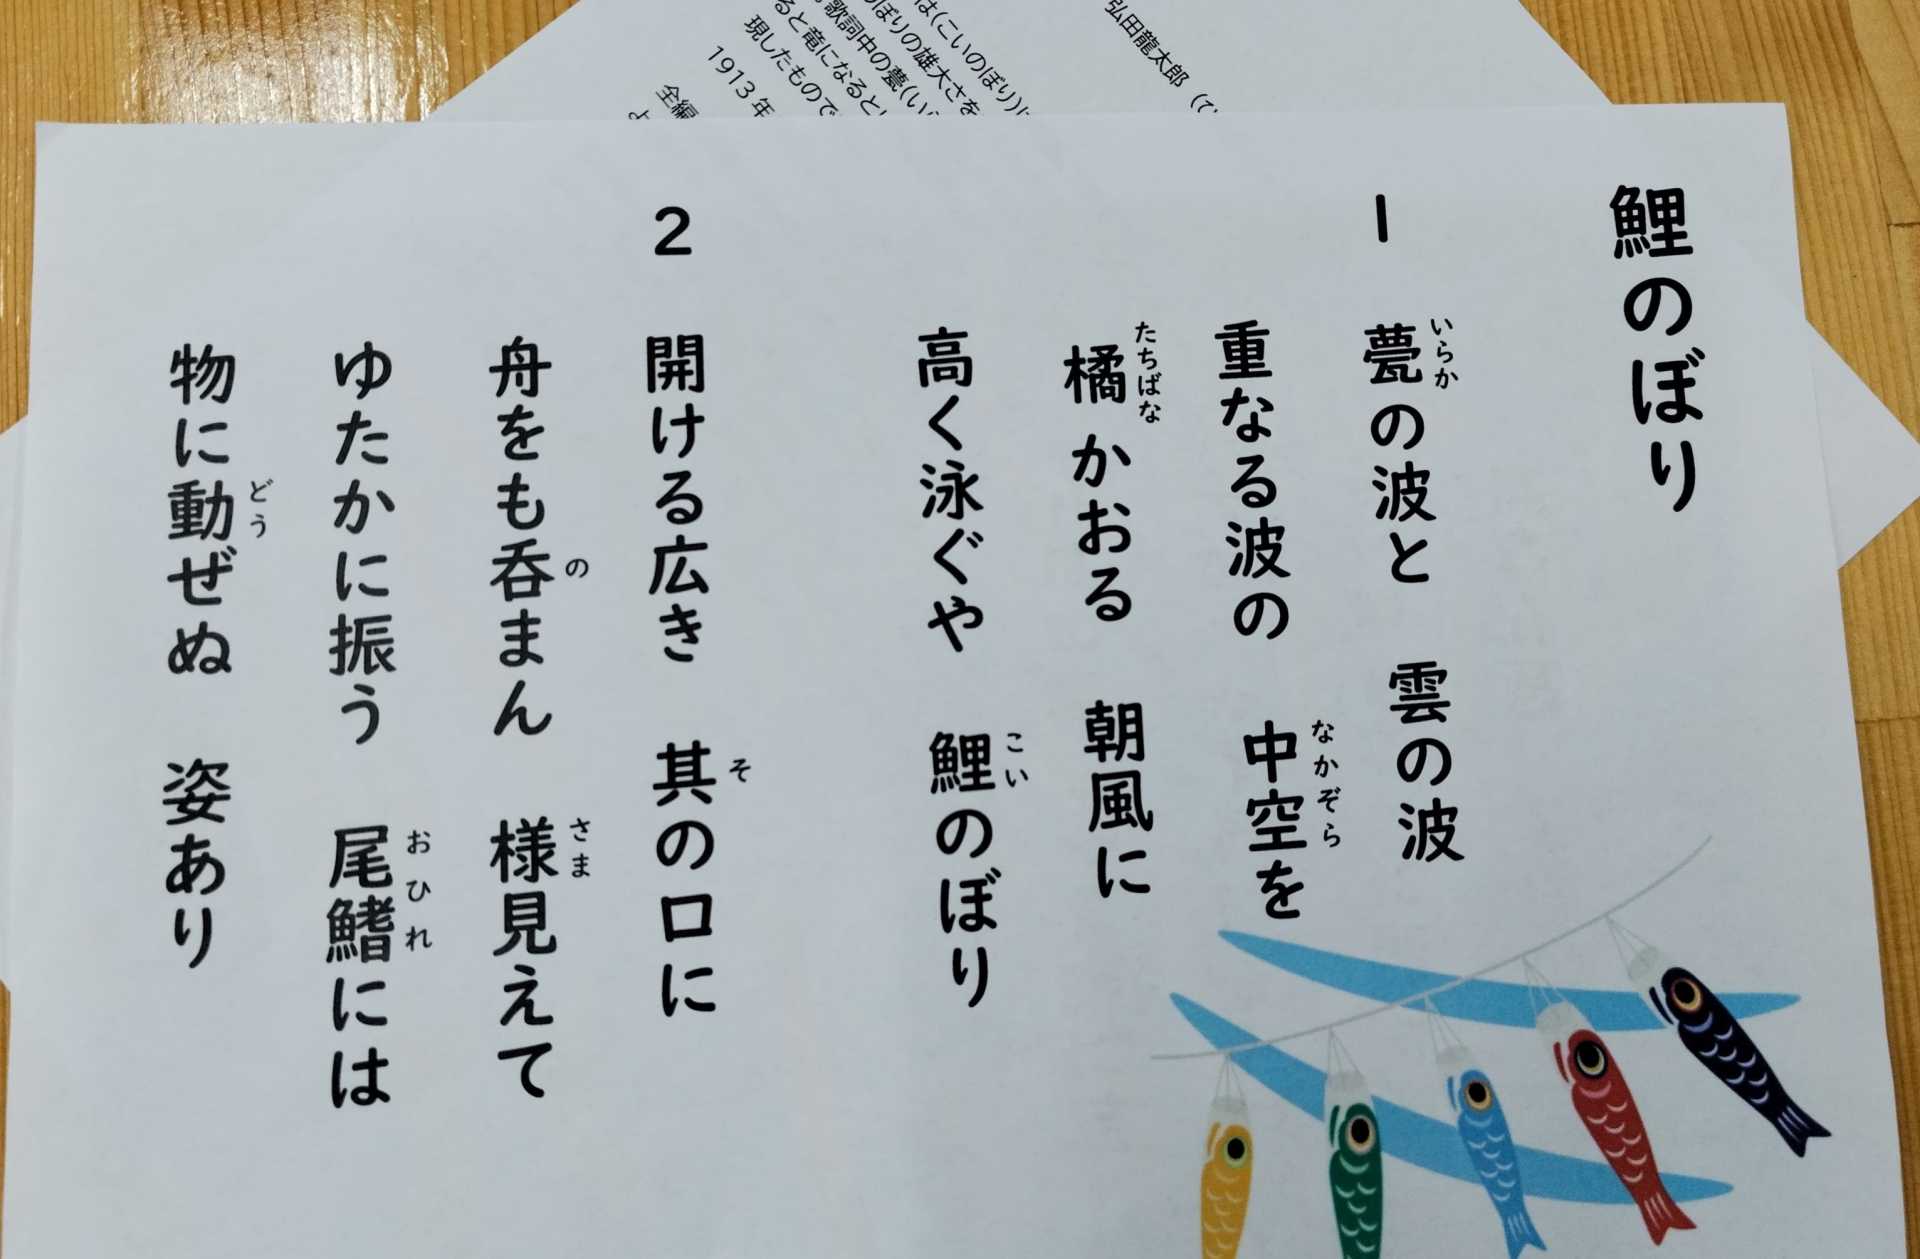 鯉のぼり
1
甍の波と　雲の波
いらか
重なる波の　中空を
なかぞら
橘かおる　朝風に
たちばな
高く泳ぐや　鯉のぼり
こい
2
開ける広き　其の口に
そ
舟をも呑まん　様見えて
の　さま
ゆたかに振う　尾鰭には
おひれ
物に動ぜぬ　姿あり
どう
弘田龍太郎
は(こいのぼり)
ぼりの雄大さを
歌詞中の甍(い
ると竜になると
現したもので
1913年
全編